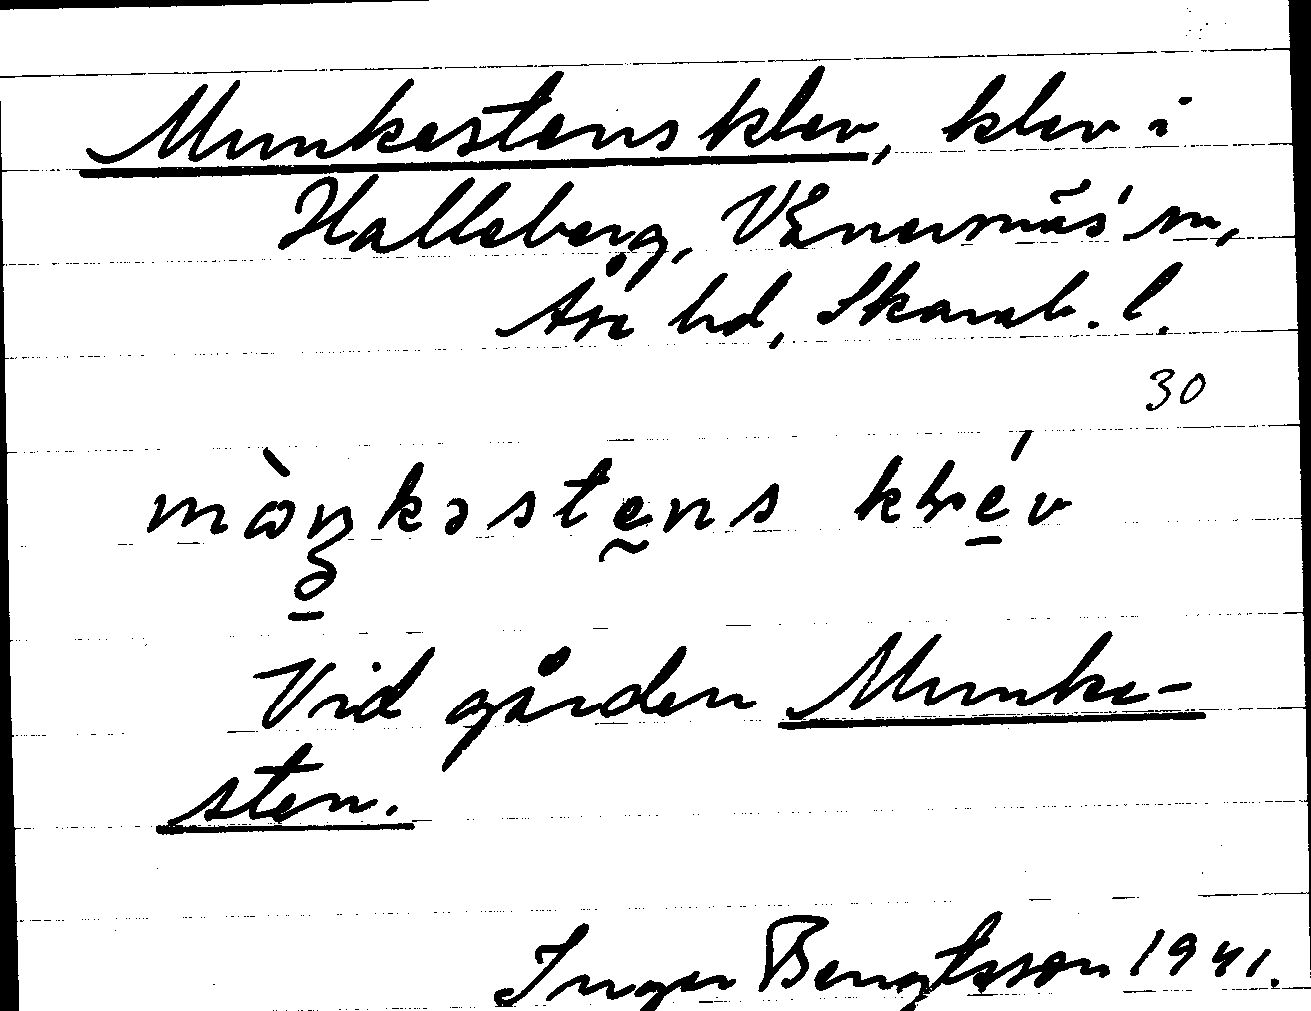 Munkestensklev, klev i
Halleberg, Vänersnäs sn,
Åse hd, Skarab. l.
30
Vid gården Munke-
sten.
Inger Bengtsson 1941.